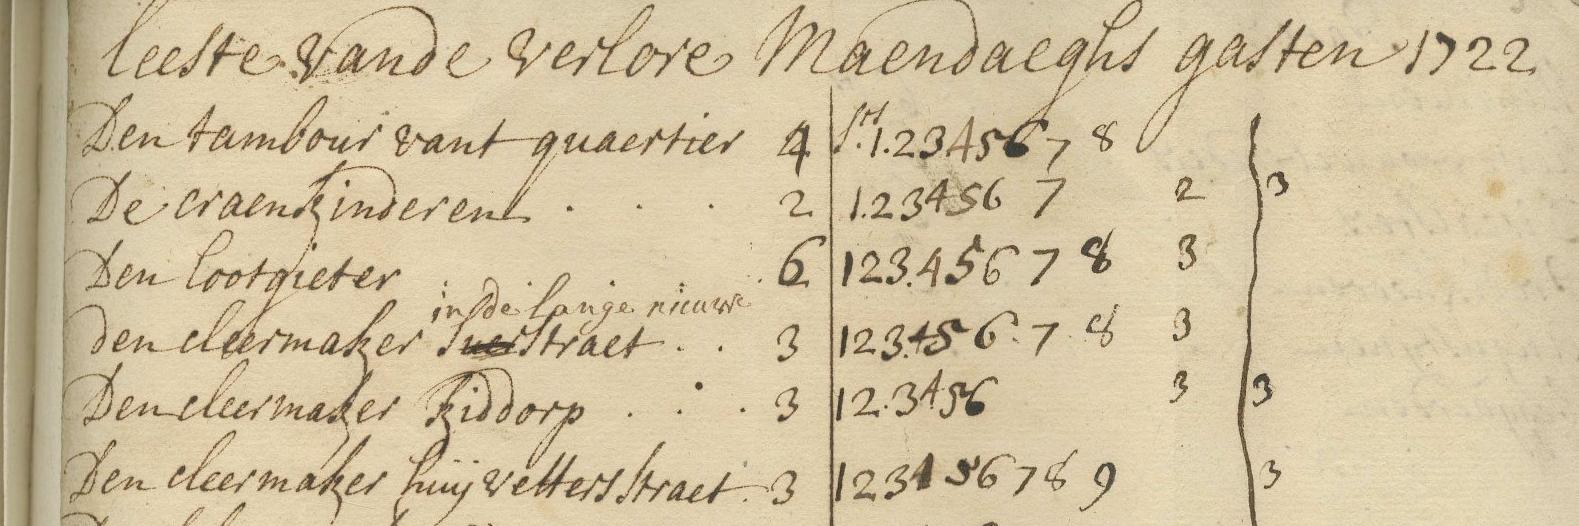 leeste vande verlore Maendaeghs gasten 1722
Den tambour vant quaertier 4 1.2 3 4 5 6 7 8
De craenkinderen . . . 2 1.2 3 4 5 6 7 2 3
Den lootgieter 6 1 2 3.4 5 6 7 8 3
in de lange nieuwe
den cleermaker straet . . 3 1 2 3.4 5 6.7 8 3
Den cleermaker Kiddorp . . . 3 1 2.3 4 5 6 3 3
Den cleermaker huijvettersstraet . 3 1 2 3 4 5 6 7 8 9 3